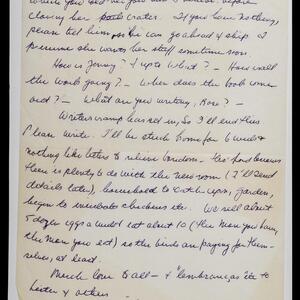 closing her crates. If you have nothing
please tell him she can go ahead & ship. I
presume she wants her stuff sometime soon
How is Jenny? & up to what? — How's all
the work going? — When does the book come
out? — What are you writing, Rose? —
Writers cramp has set in, so I'll end this
Please write. I'll be stuck home for 6 weeks &
nothing like letters to relieve boredom. the
there is plenty to do with the new room (I'll send
details later), household to catch up, garden,
begin to incubate chickens etc. We sell about
5 dozen eggs a week & eat about 10 (the more you have,
the more you eat) so the birds are paying for them-
selves, at least.
Much love to all — & "lembranças" etc to
Lester & others